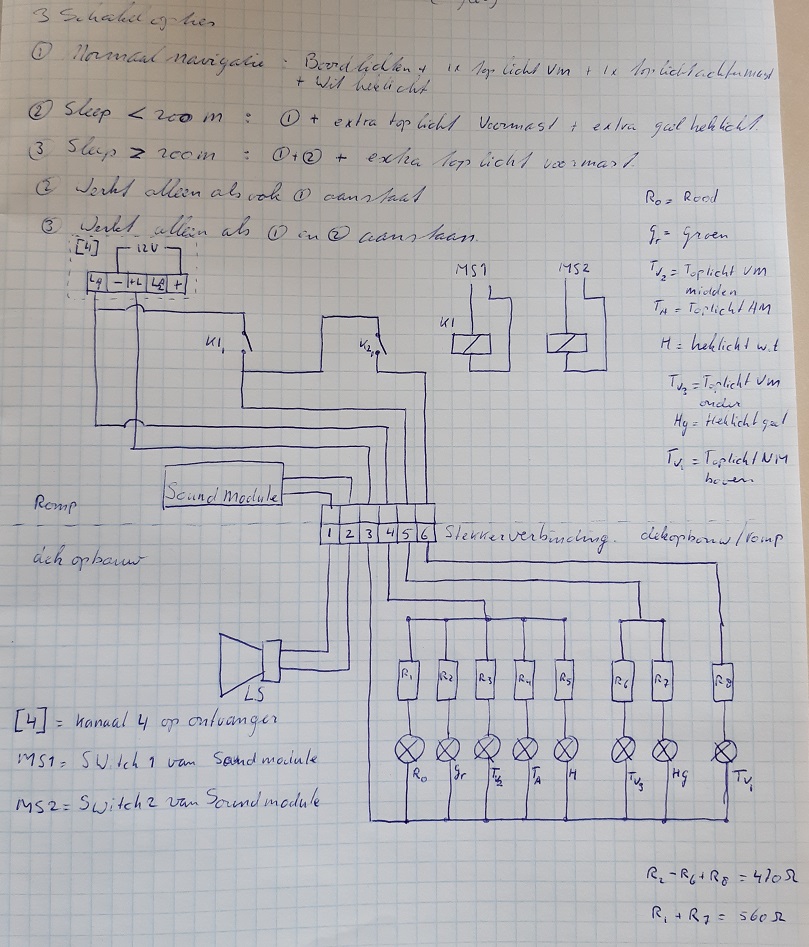 3 Schakel opties
① Normaal navigatie : Boordlichten + 1x toplicht Vm + 1x toplicht achtermast
+ Wit heklicht
② Sleep < 200 m : ① + extra toplicht Voormast + extra geel heklicht.
③ Sleep ≥ 200m : ①+② + extra toplicht voormast.
② Werkt alleen als ook ① aanstaat
③ Werkt allein als ① en ② aanstaan.
Ro = Rood
Gr = Groen
TV2 = Toplicht VM
midden
TA = Toplicht AM
H = heklicht wit
TV3 = Toplicht VM
onder
Hg = Heklicht geel
TV1 = Toplicht VM
boven
[4] 12V
L1 - +L L2 +
MS1 MS2
K1 K2 K1
Sound module
Romp
1 2 3 4 5 6 Stekkerverbinding. dekopbouw/romp
dekopbouw
LS
R1 R2 R3 R4 R5 R6 R7 R8
Ro Gr TV2 TA H TV3 Hg TV1
[4] = Kanaal 4 op ontvanger
MS1 = Switch 1 van Soundmodule
MS2 = Switch 2 van Soundmodule
R2 - R6 + R8 = 470Ω
R1 + R7 = 560Ω